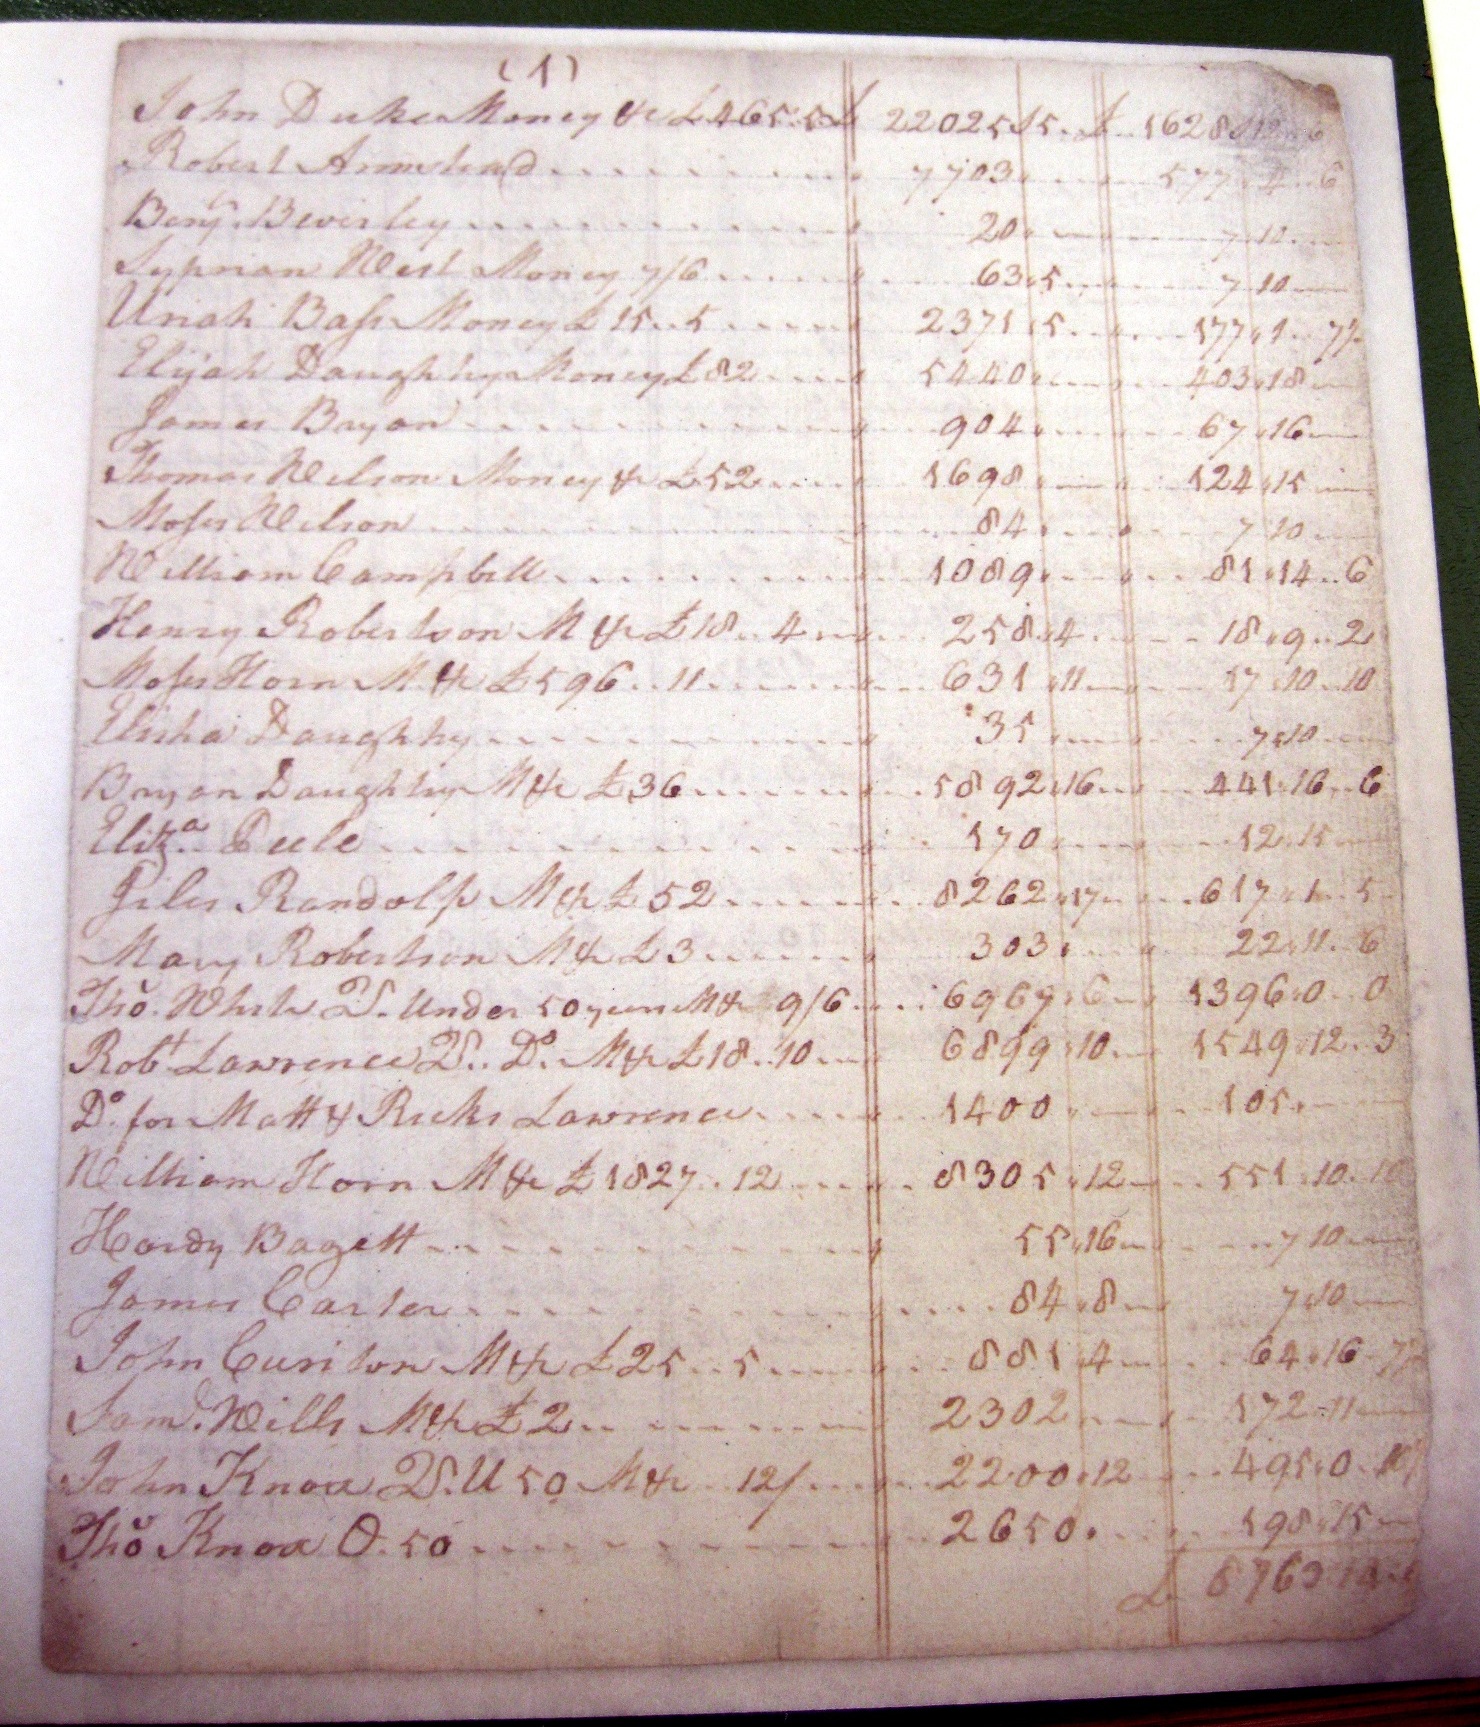 (1)
John Duke Money &c £465..5 £ 22025 15 .. £ 1628 12 6
Robert Armstead 7703 577 4 6
Benj. Beverley 20 7 10
Syprian West Money 7/6 63 5 7 10
Uriah Bass Money £15..5 2371 5 177 1 7½
Elijah Daughtry Money £82 5440 403 18
James Bryan 904 67 16
Thomas Wilson Money &c £52 1698 124 15
Moses Wilson 84 7 10
William Campbell 1089 81 14 .. 6
Henry Robertson M &c £18 .. 4 258 4 18 9 .. 2
Moses Horn M &c £596 .. 11 631 11 17 10 10
Elisha Daughtry 35 7 10
Bryan Daughtry M &c £36 5892 16 441 16 .. 6
Eliz.a Peele 170 12 15
Giles Randolph M &c £52 8262 17 617 1 5
Mary Robertson M &c £3 303 22 11 .. 6
Tho. White D. Under 50 years M &c 9/6 6967 6 1396 0 0
Robt. Lawrence D. Do. M &c £18..10 6899 10 1549 12 .. 3
Do. for Matt & Ricks Lawrence 1400 105
William Horn M &c £1827 .. 12 8305 12 551 10 .. 10
Hardy Bagett 55 16 7 10
James Carter 84 8 7 10
John Curiton M &c £25 .. 5 881 4 64 16 7½
Samd. Wills M &c £2 2302 172 11
John Knox D. U 50 M &c .. 12/ 2200 12 495 0
Tho Knox O. 50 2650 198 15
£ 8763